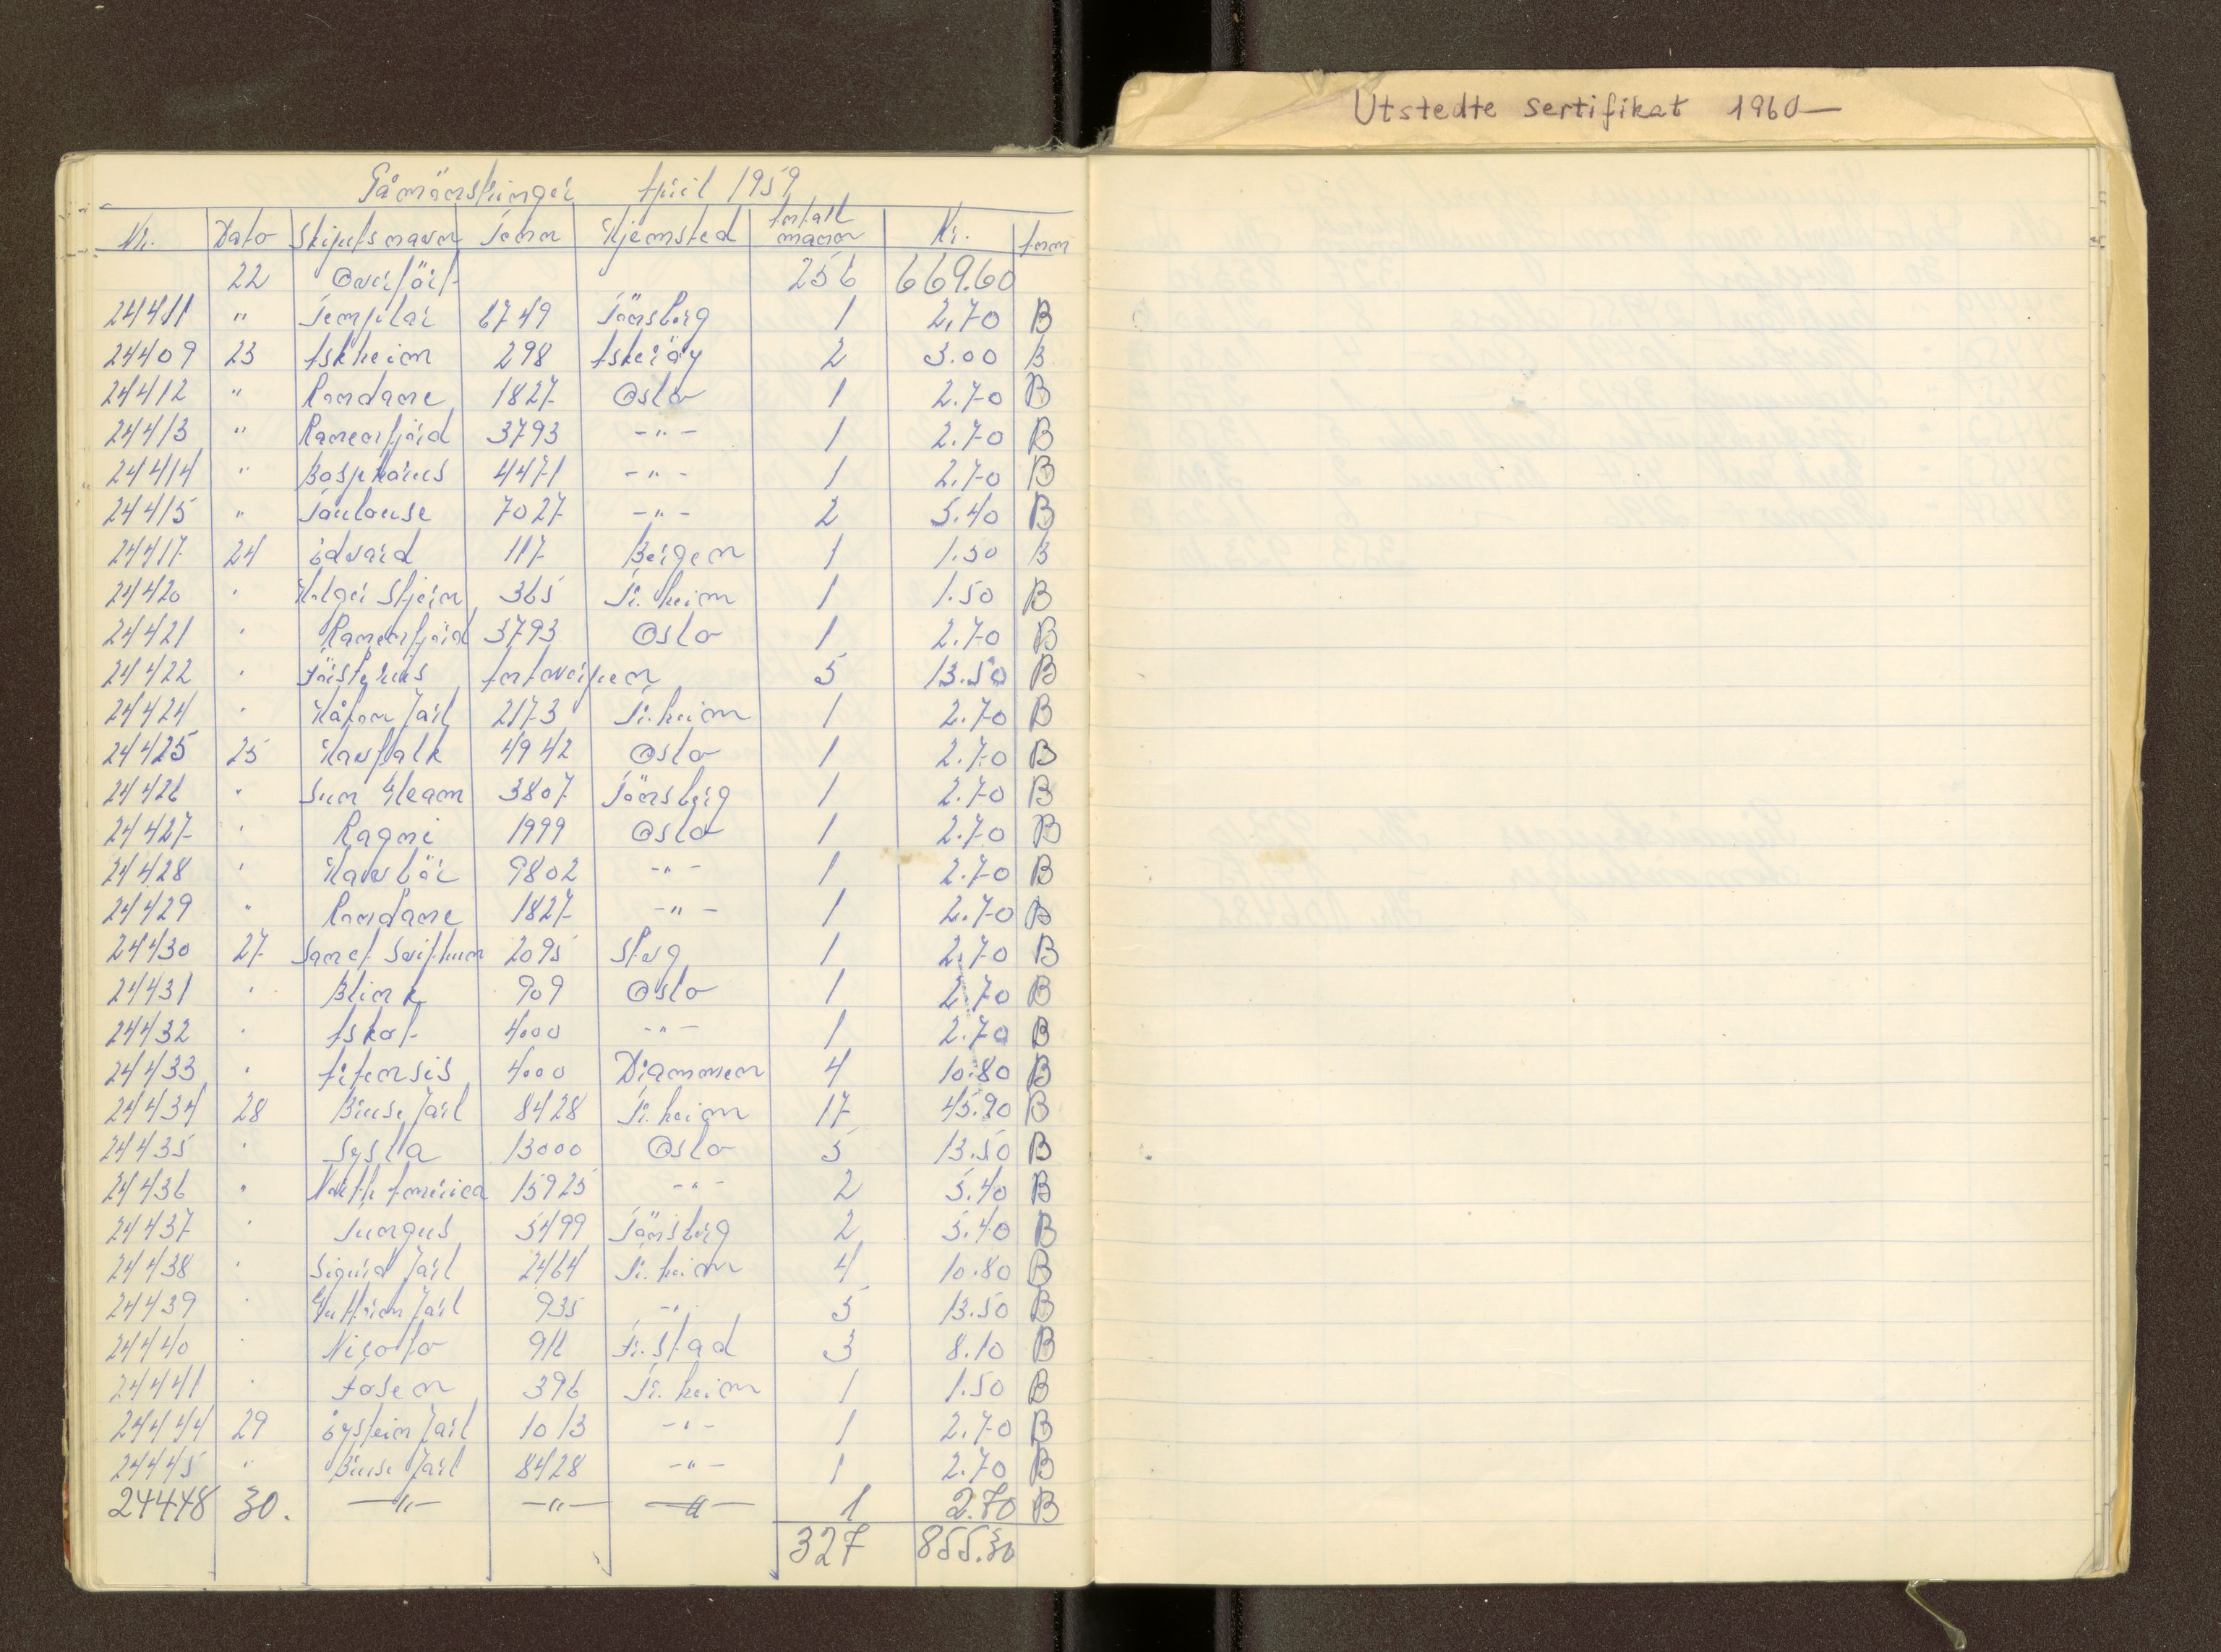 Påmønstringer April 1959
Nr. Dato Skipets navn Tonn Hjemsted Antall mann Kr. Anm
22 Overført 256 669.60
24411 " Templar 6749 Tönsberg 1 2.70 B
24409 23 Askheim 298 Askeröy 2 3.00 B
24412 " Rondane 1827 Oslo 1 2.70 B
24413 " Ranenfjord 3793 -"- 1 2.70 B
24414 " Bosphorus 4471 -"- 1 2.70 B
24415 " Toulouse 7027 -"- 2 5.40 B
24417 24 Edvard 117 Bergen 1 1.50 B
24420 " Holger Stjern 365 Tr.heim 1 1.50 B
24421 " Ranenfjord 3793 Oslo 1 2.70 B
24422 " Antwerpen 5 13.50 B
24424 " Håkon Jarl 2173 Tr.heim 1 2.70 B
24425 25 Havfalk 4942 Oslo 1 2.70 B
24426 " Sun Gleam 3807 Tönsberg 1 2.70 B
24427 " Ragni 1999 Oslo 1 2.70 B
24428 " Havbör 9802 -"- 1 2.70 B
24429 " Rondane 1827 -"- 1 2.70 B
24430 27 Sanct Svithun 2095 Stvg 1 2.70 B
24431 " Blink 909 Oslo 1 2.70 B
24432 " Askot 4000 -"- 1 2.70 B
24433 " 4000 Drammen 4 10.80 B
24434 28 Bruse Jarl 8428 Tr.heim 17 45.90 B
24435 " Sysla 13000 Oslo 5 13.50 B
24436 " North America 15925 -"- 2 5.40 B
24437 " Tungus 5499 Tönsberg 2 5.40 B
24438 " Sigurd Jarl 2464 Tr.heim 4 10.80 B
24439 " Guttorm Jarl 935 -"- 5 13.50 B
24440 " Nicoto 911 Fr.stad 3 8.10 B
24441 " Fosen 396 Tr.heim 1 1.50 B
24444 29 Øystein Jarl 1013 -"- 1 2.70 B
24445 " Bruse Jarl 8428 -"- 1 2.70 B
24448 30. -"- -"- -"- 1 2.70 B
327 855.30
Utstedte sertifikat 1960—